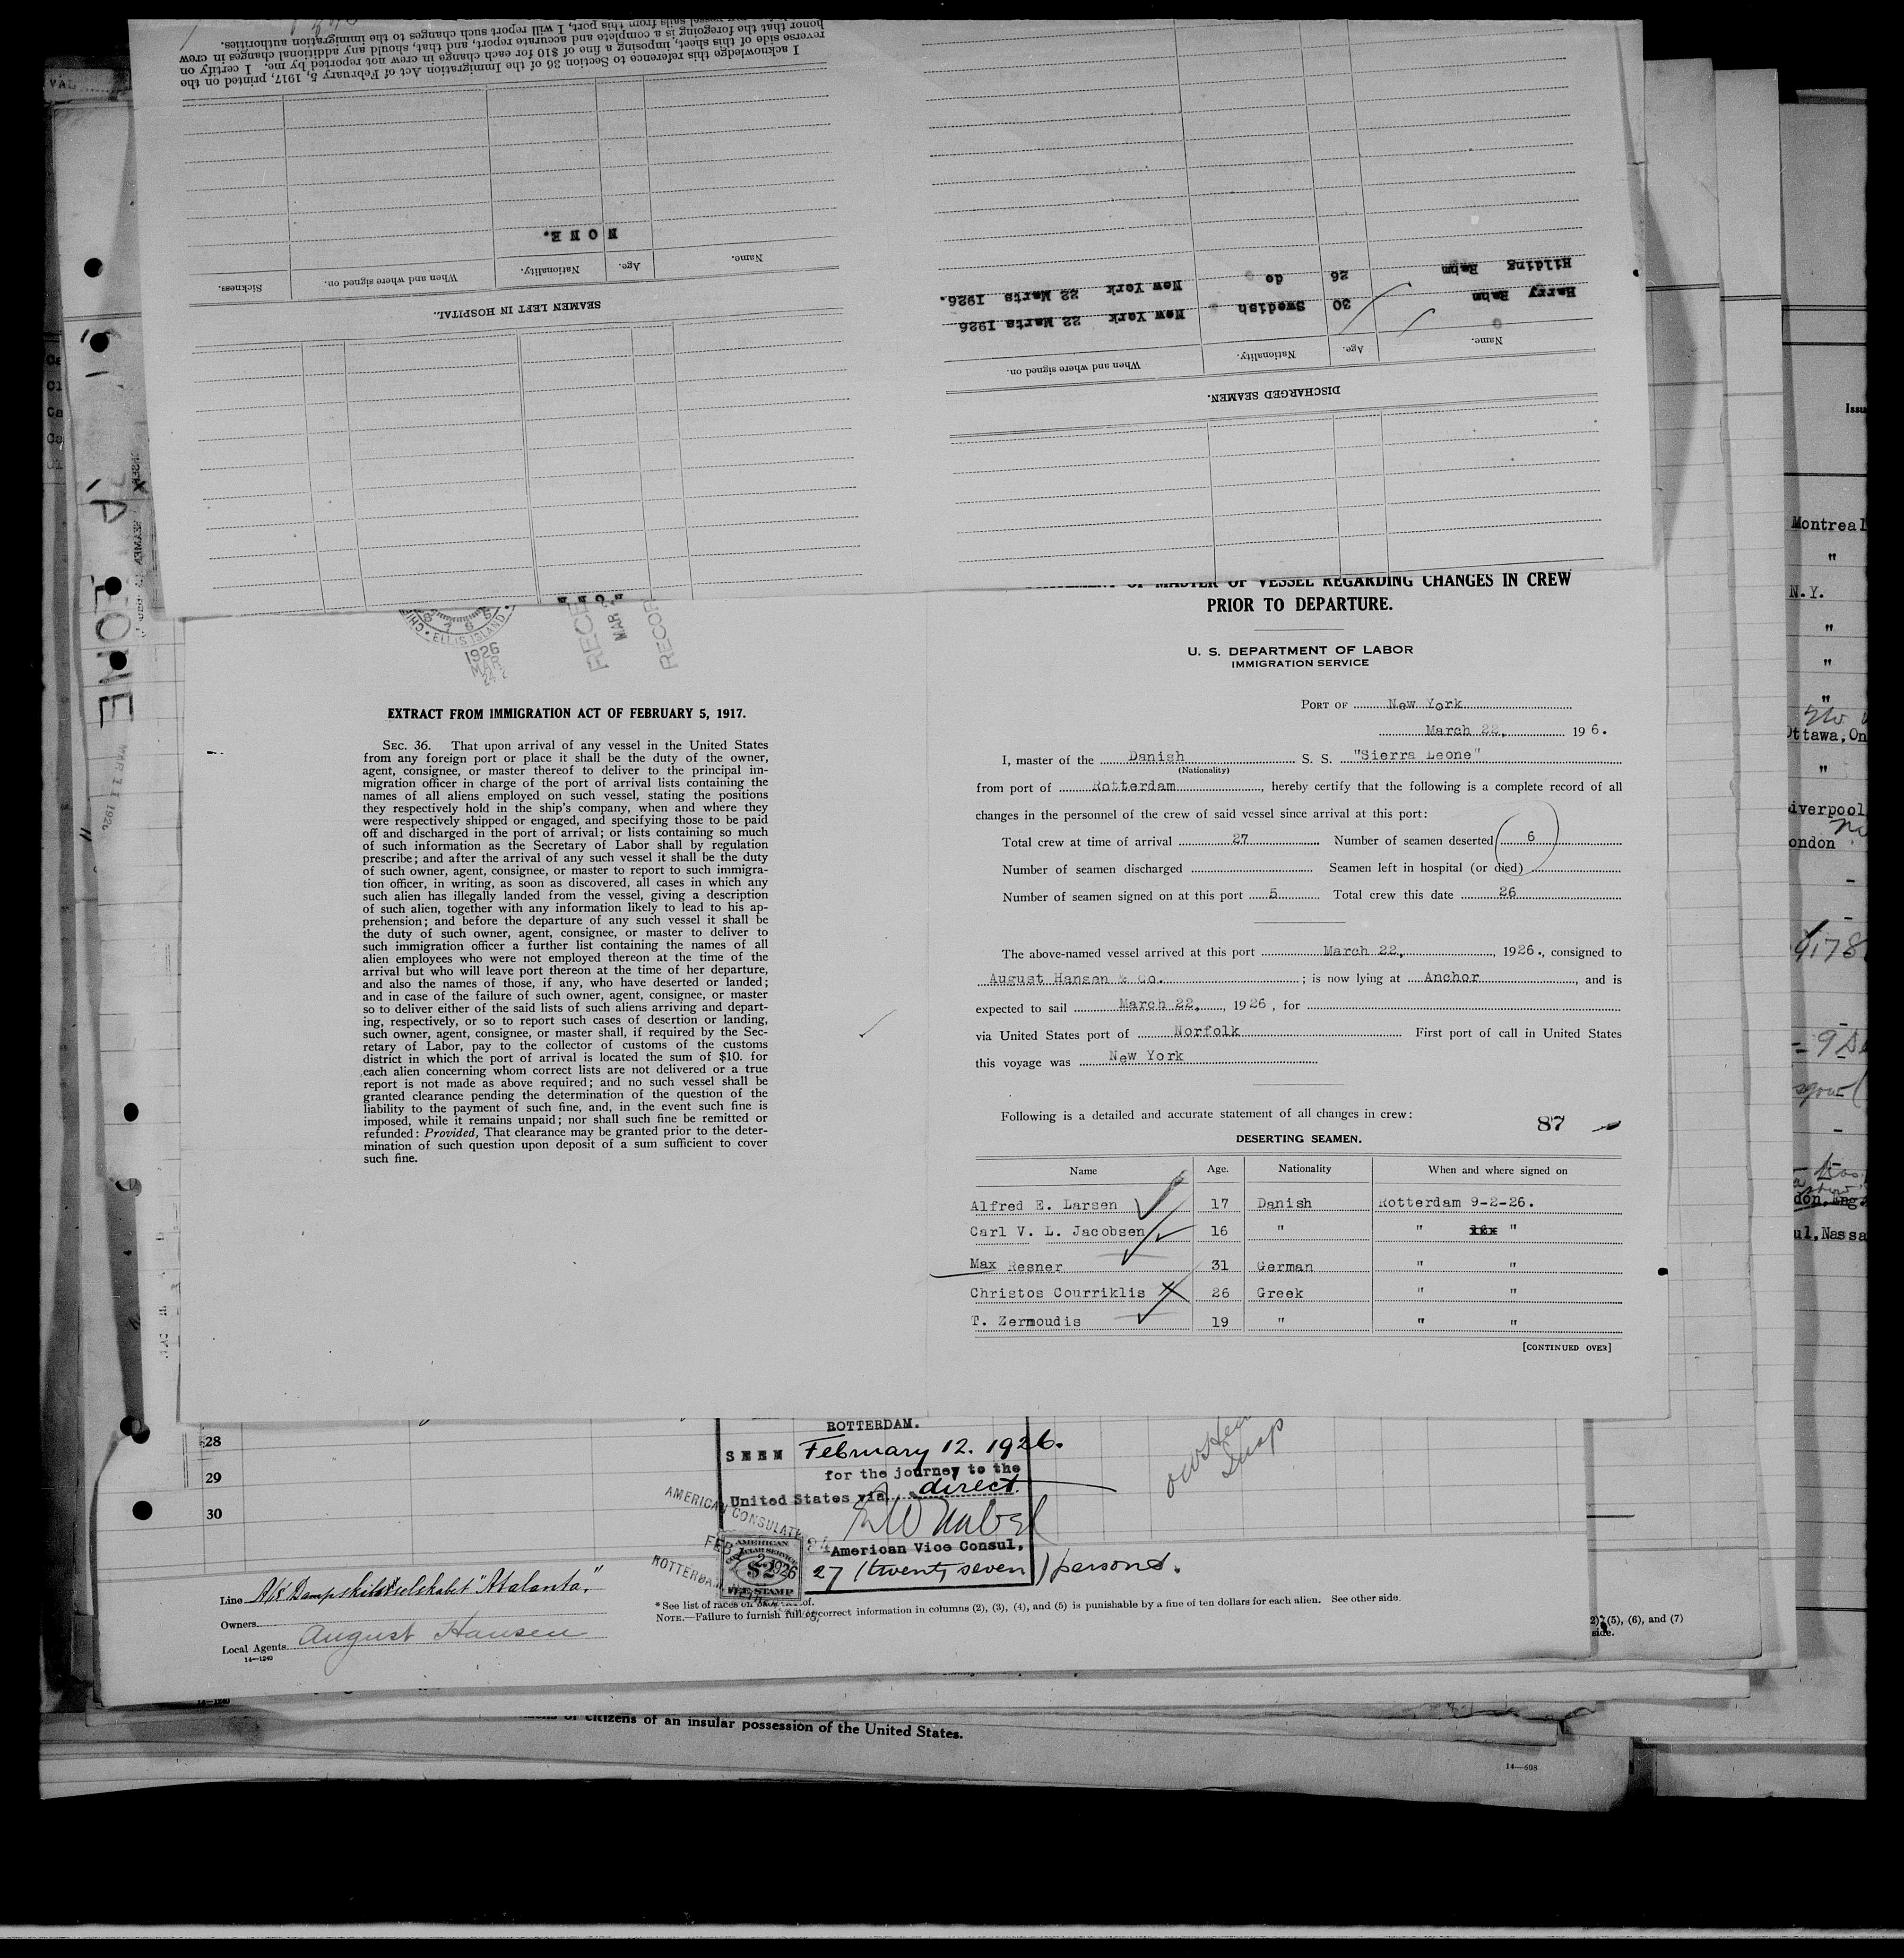 I acknowledge this reference to Section 36 of the Immigration Act of February 5, 1917, printed on the
reverse side of this sheet, imposing a fine of $10 for each change in crew not reported by me. I certify on
honor that the foregoing is a complete and accurate report, and that, should any additional changes in crew
sails from this port, I will report such changes to the immigration authorities.
SEAMEN LEFT IN HOSPITAL.
Name. Age. Nationality. When and where signed on. Sickness.
NONE.
DISCHARGED SEAMEN.
Name. Age. Nationality. When and where signed on.
Harry Rahm 30 Swedish New York 22 Marts 1926
Hilding Rahm 26 do New York 22 Marts 1926.
MASTER OF VESSEL REGARDING CHANGES IN CREW
PRIOR TO DEPARTURE.
U. S. DEPARTMENT OF LABOR
IMMIGRATION SERVICE
PORT OF New York
March 22, 19 6.
I, master of the Danish S. S. "Sierra Leone"
(Nationality)
from port of Rotterdam, hereby certify that the following is a complete record of all
changes in the personnel of the crew of said vessel since arrival at this port:
Total crew at time of arrival 27 Number of seamen deserted 6
Number of seamen discharged Seamen left in hospital (or died)
Number of seamen signed on at this port 5 Total crew this date 26
The above-named vessel arrived at this port March 22, 1926., consigned to
August Hansen & Co. ; is now lying at Anchor, and is
expected to sail March 22, 1926, for
via United States port of Norfolk First port of call in United States
this voyage was New York
Following is a detailed and accurate statement of all changes in crew:
87
DESERTING SEAMEN.
Name Age. Nationality When and where signed on
Alfred E. Larsen 17 Danish Rotterdam 9-2-26.
Carl V. L. Jacobsen 16 " " "
Max Resner 31 German " "
Christos Courriklis 26 Greek " "
T. Zermoudis 19 " " "
[CONTINUED OVER]
ELLIS ISLAND
1926
MAR
24
RECE
MAR
RECOR
EXTRACT FROM IMMIGRATION ACT OF FEBRUARY 5, 1917.
SEC. 36. That upon arrival of any vessel in the United States
from any foreign port or place it shall be the duty of the owner,
agent, consignee, or master thereof to deliver to the principal im-
migration officer in charge of the port of arrival lists containing the
names of all aliens employed on such vessel, stating the positions
they respectively hold in the ship's company, when and where they
were respectively shipped or engaged, and specifying those to be paid
off and discharged in the port of arrival; or lists containing so much
of such information as the Secretary of Labor shall by regulation
prescribe; and after the arrival of any such vessel it shall be the duty
of such owner, agent, consignee, or master to report to such immigra-
tion officer, in writing, as soon as discovered, all cases in which any
such alien has illegally landed from the vessel, giving a description
of such alien, together with any information likely to lead to his ap-
prehension; and before the departure of any such vessel it shall be
the duty of such owner, agent, consignee, or master to deliver to
such immigration officer a further list containing the names of all
alien employees who were not employed thereon at the time of the
arrival but who will leave port thereon at the time of her departure,
and also the names of those, if any, who have deserted or landed;
and in case of the failure of such owner, agent, consignee, or master
so to deliver either of the said lists of such aliens arriving and depart-
ing, respectively, or so to report such cases of desertion or landing,
such owner, agent, consignee, or master shall, if required by the Sec-
retary of Labor, pay to the collector of customs of the customs
district in which the port of arrival is located the sum of $10. for
each alien concerning whom correct lists are not delivered or a true
report is not made as above required; and no such vessel shall be
granted clearance pending the determination of the question of the
liability to the payment of such fine, and, in the event such fine is
imposed, while it remains unpaid; nor shall such fine be remitted or
refunded: Provided, That clearance may be granted prior to the deter-
mination of such question upon deposit of a sum sufficient to cover
such fine.
28
29
30
ROTTERDAM.
SEEN February 12. 1926.
for the journey to the
United States via direct.
American Vice Consul,
27 (twenty seven) persons.
AMERICAN CONSULATE
FEB 12 1926
ROTTERDAM
AMERICAN
CONSULAR SERVICE
$2
FEE STAMP
Line A/S Dampskibsselskabet "Atalanta,"
Owners
Local Agents August Hansen
14—1240
* See list of races on
NOTE.—Failure to furnish full or correct information in columns (2), (3), (4), and (5) is punishable by a fine of ten dollars for each alien. See other side.
(5), (6), and (7)
side.
14—1240
of citizens of an insular possession of the United States.
14—698
MAR 11 1926
Issu
Montreal
"
N.Y.
"
"
"
Ottawa, On
"
Liverpool
London
9178